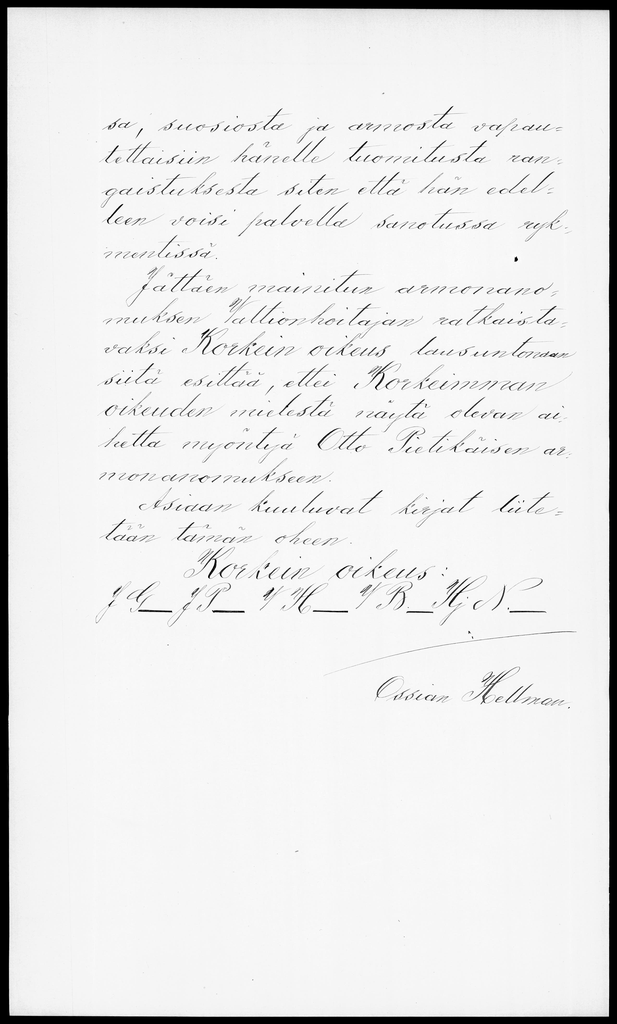 sa, suosiosta ja armosta vapau=
tettaisiin hänelle tuomitusta ran=
gaistuksesta siten että hän edel=
leen voisi palvella sanotussa ryk=
mentissä.
Jättäen mainitun armonano=
muksen Valtionhoitajan ratkaista=
vaksi Korkein oikeus lausuntonaan
siitä esittää, ettei Korkeimman
oikeuden mielestä näytä olevan ai=
hetta myöntyä Otto Pietikäisen ar=
monanomukseen.
Asiaan kuuluvat kirjat liite=
tään tämän oheen.
Korkein oikeus:
J G_ J P_ V H_ V B_ Hj N._
Ossian Hellman.